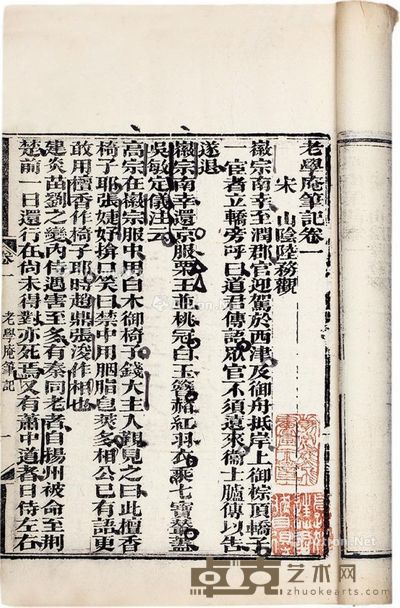 老學庵筆記卷一
宋　山陰陸務觀
徽宗南幸至潤郡官迎駕於西津及御舟抵岸上御棕頂轎子
一宦者立轎旁呼曰道君傳語眾官不須遠來衞士臚傳以告
遂退
徽宗南幸還京服栗玉並桃冠白玉簪赭紅羽衣乘七寶輦蓋
吳敏定儀注云
高宗在徽宗服中用白木御椅子錢大主入覲見之曰此檀香
椅子耶張婕妤掩口笑曰禁中用胭脂皂莢多相公已有語更
敢用檀香作椅子耶時趙鼎張浚作相也
建炎苗劉之變內侍遇害至多有秦同老者自揚州被命至荆
楚前一日還行在尚未得對亦死焉又有蕭中道者日侍左右
卷一
老學庵筆記
一
卓克艺术网
www.zhuokearts.com